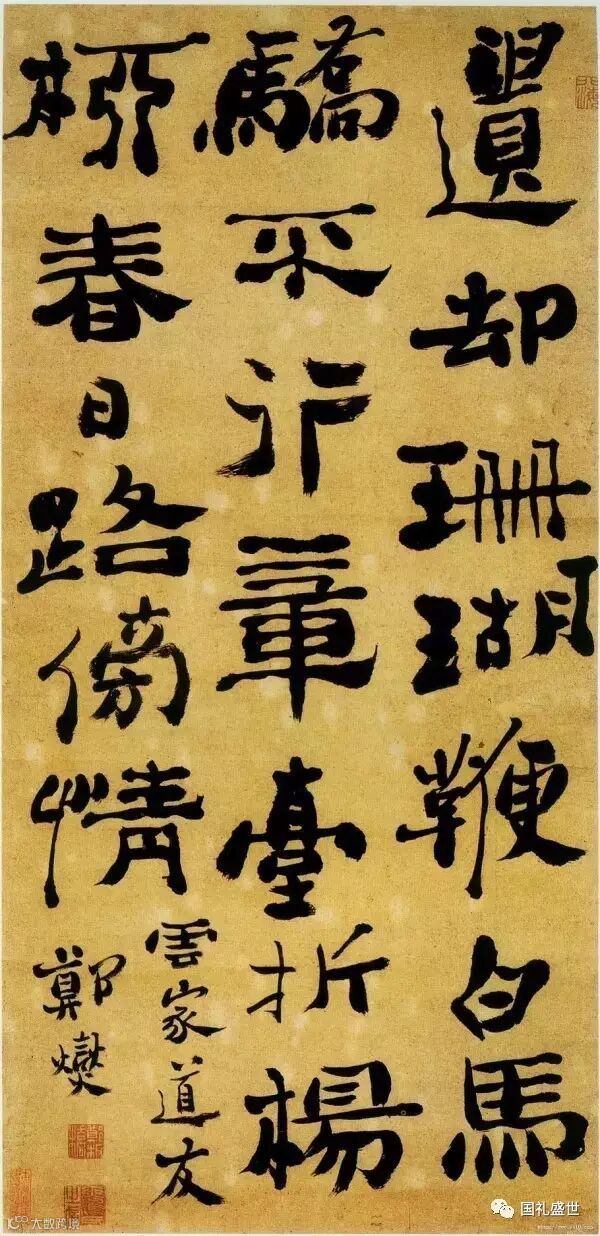 遺却珊瑚鞭白馬
驕不行章臺折楊
柳春日路傍情
雲家道友
鄭燮
国礼盛世
大数跨境